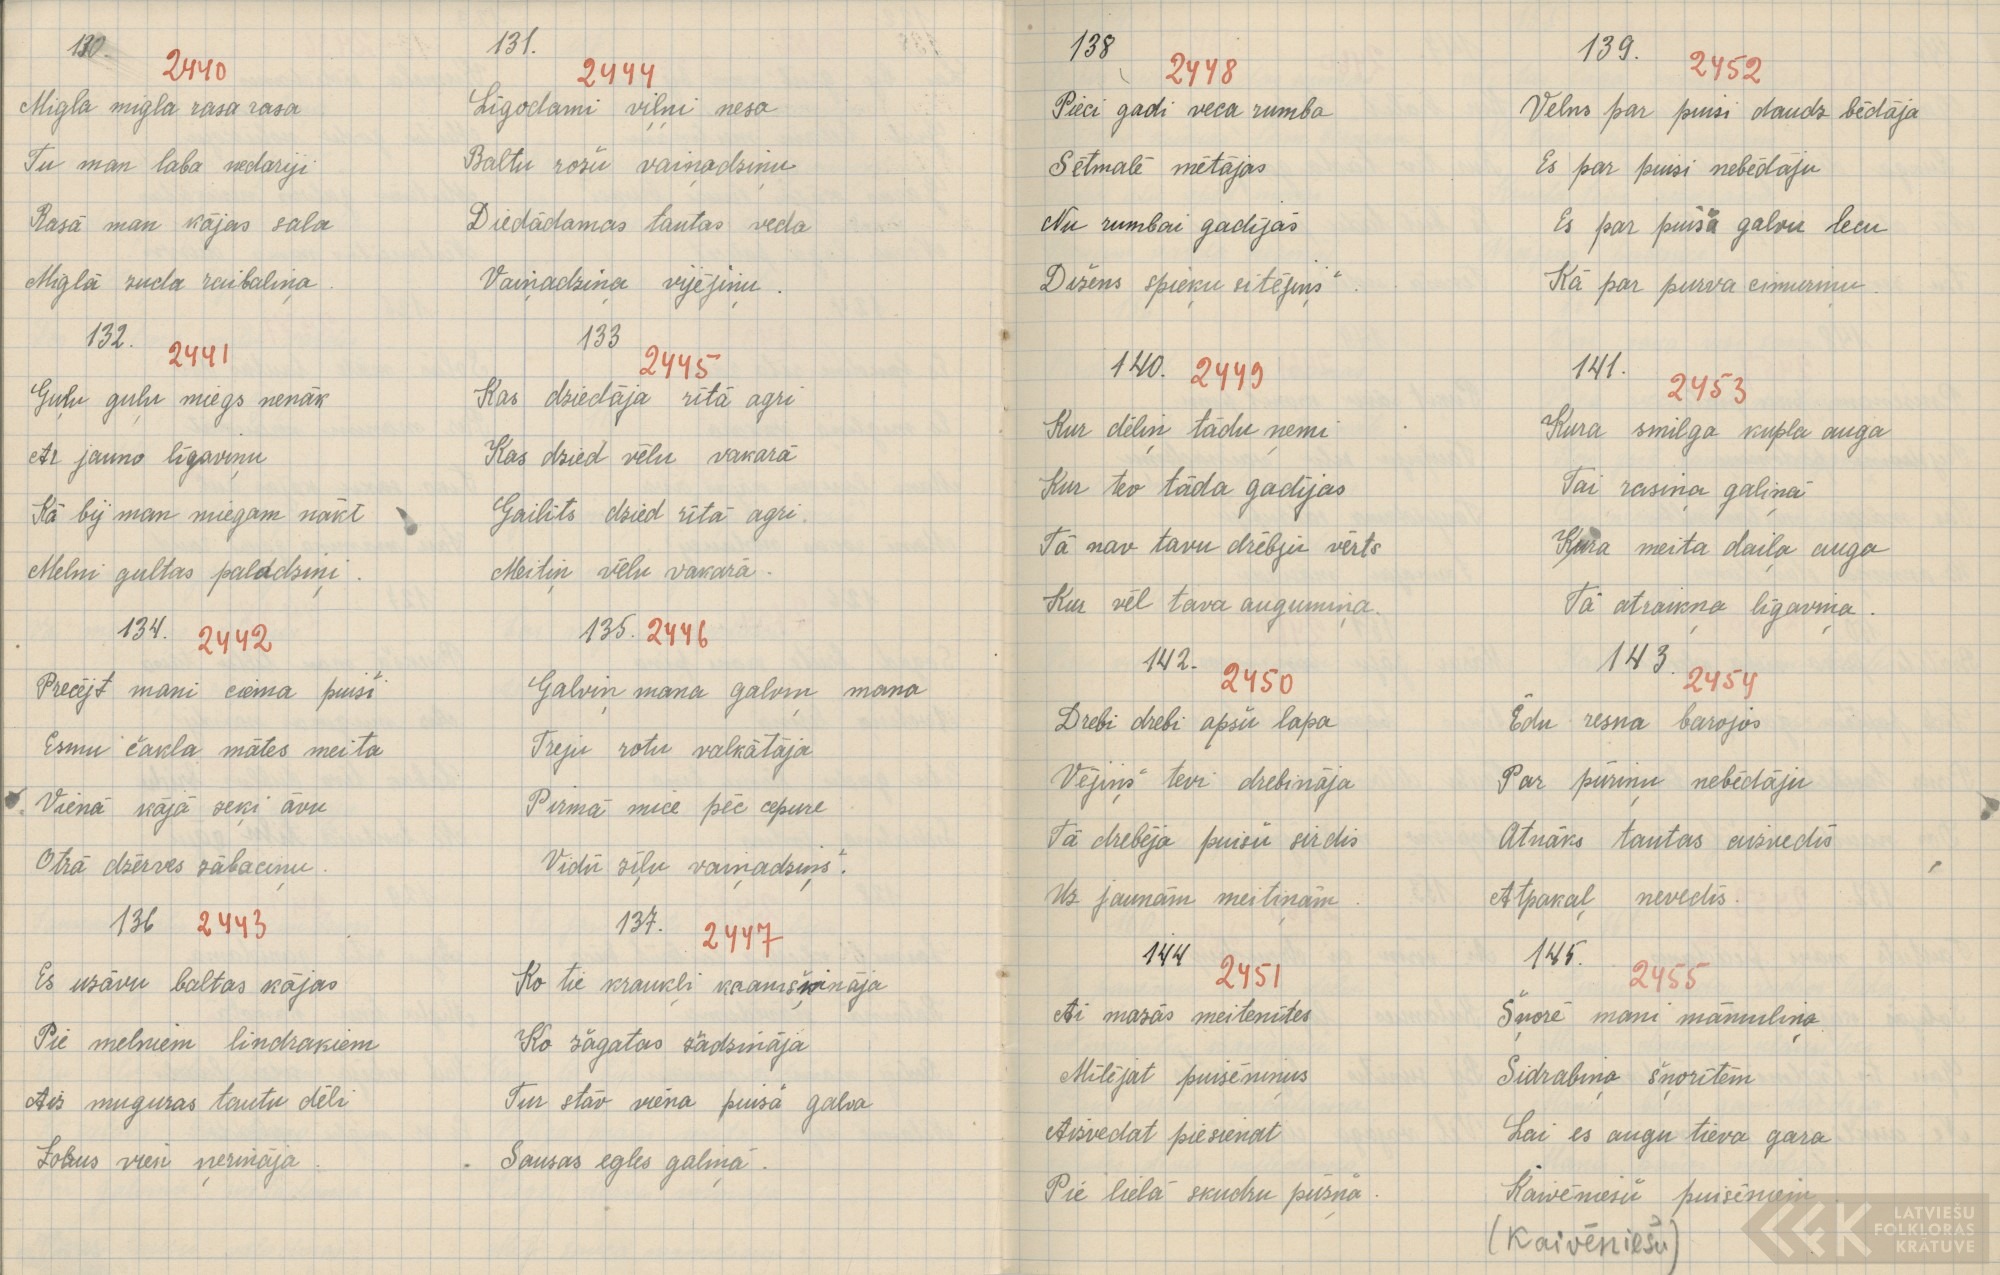 130.
2440
Migla migla rasa rasa
Tu man laba nedariji
Rasā man kājas sala
Miglā zuda raibaliņa.
131.
2444
Ligodami viļņi nesa
Baltu rožu vaiņadziņu
Diedādamas tautas veda
Vaiņadziņa vijējiņu.
132.
2441
Guļu guļu miegs nenāk
Ar jauno līgaviņu
Kā bij man miegam nākt
Melni gultas paladziņi.
133
2445
Kas dziedāja rītā agri
Kas dzied vēlu vakarā
Gailīts dzied rītā agri.
Meitiņ vēlu vakarā.
134.
2442
Precējt mani ciema puiš'
Esmu čakla mātes meita
Vienā kājā zeķi āvu
Otrā dzērves zābaciņu.
135.
2446
Galviņ mana galviņ mana
Treju rotu valkātāja
Pirmā mice pēc cepure
Vidū zīļu vaiņadziņš.
136
2443
Es uzāvu baltas kājas
Pie melniem lindrakiem
Aiz muguras tautu dēli
Zobus vien ņerināja.
137.
2447
Ko tie kraukļi kramšķināja
Ko žāgatas žādzināja
Tur stāv viena puiša galva
Sausas egles galiņā.
138
2448
Pieci gadi veca rumba
Sētmalē mētājas
Nu rumbai gadījās
Dižens spieķu sitējiņš.
139.
2452
Velns par puisi daudz bēdāja
Es par puisi nebēdāju
Es par puiša galvu lecu
Kā par purva cimuriņu.
140.
2449
Kur dēliņ tādu ņemi
Kur tev tāda gadījas
Tā nav tavu drēbju vērts
Kur vēl tava augumiņa.
141.
2453
Kura smilga kupla auga
Tai rasiņa galiņā
Kura meita daiļa auga
Tā atraikņa līgaviņa.
142.
2450
Drebi drebi apšu lapa
Vējiņš tevi drebināja
Tā drebēja puišu sirdis
Uz jaunām meitiņām.
143.
2454
Ēdu resna barojos
Par pūriņu nebēdāju
Atnāks tautas aizvedīs
Atpakaļ nevedīs.
144
2451
Ai mazās meitenītes
Mīlējat puisēniņus
Aizvedat piesienat
Pie lielā skudru pūzņa.
145.
2455
Šņorē mani māmuliņa
Sidrabiņa šņorītēm
Lai es augu tieva gara
Kaivēniešu puisēniem
(Kaivēniešu)
LATVIEŠU
FOLKLORAS
KRĀTUVE